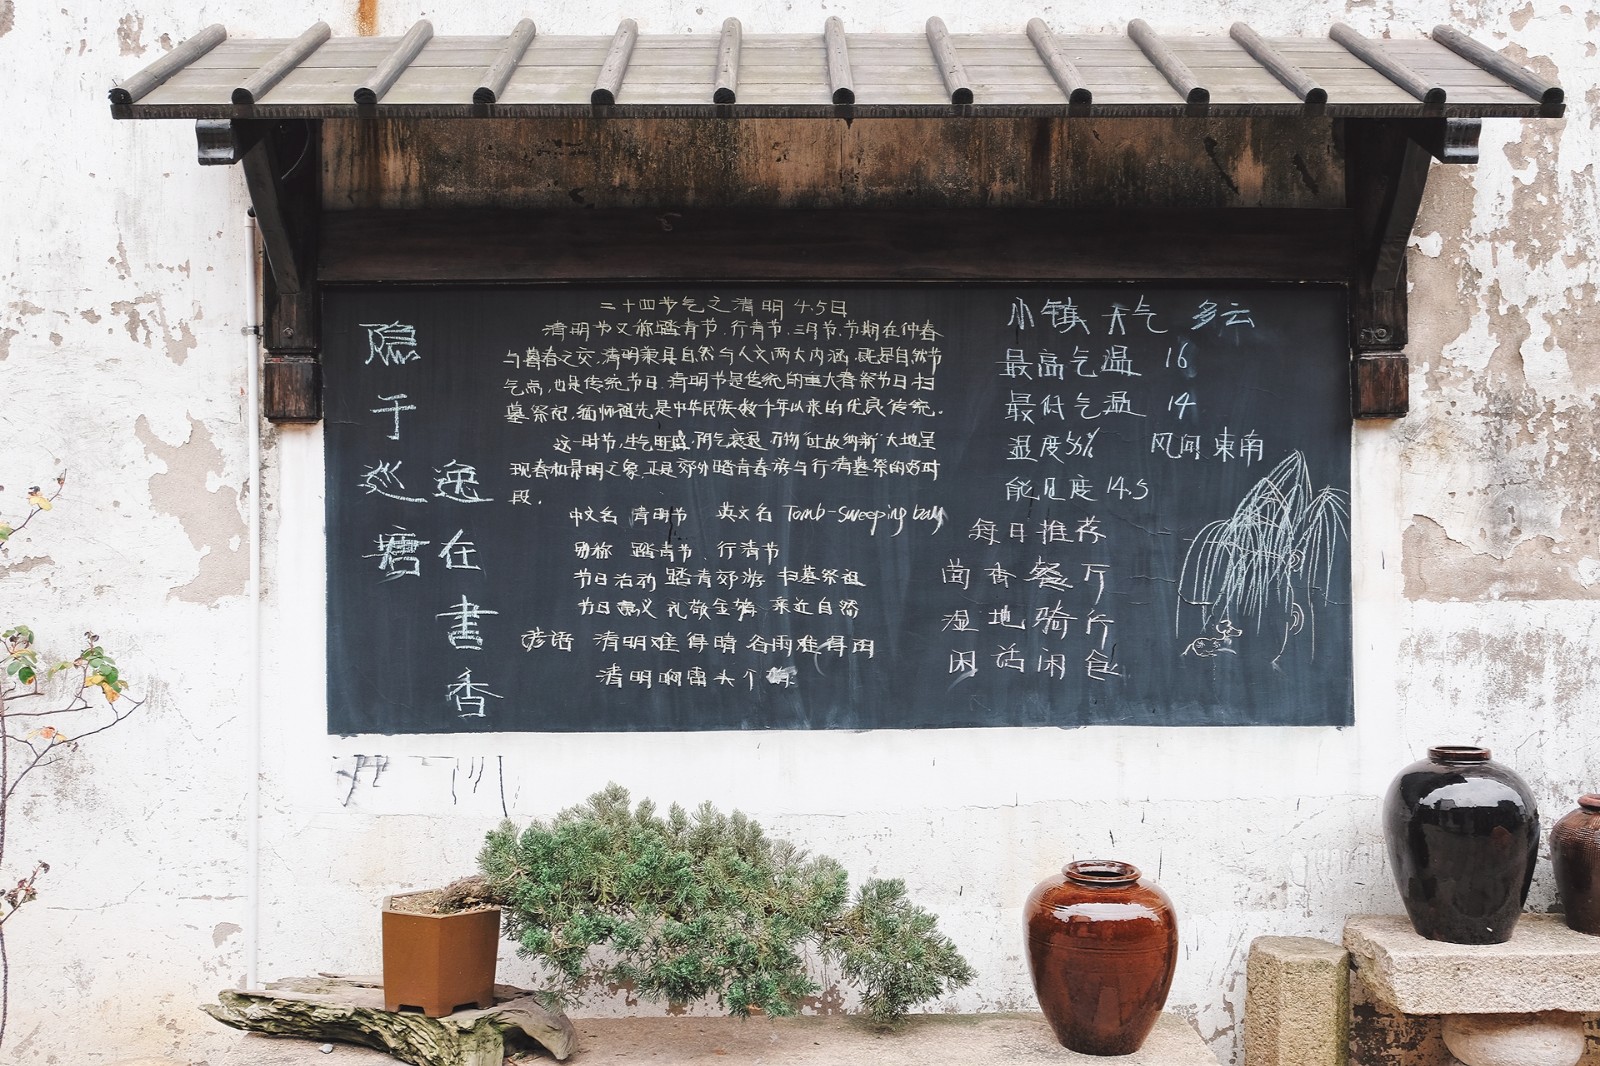 隐于巡塘
逸在書香
二十四节气之清明 4.5日
清明节又称踏青节、行清节、三月节,节期在仲春
与暮春之交,清明兼具自然与人文两大内涵,既是自然节
气点,也是传统节日.清明节是传统的重大春祭节日,扫
墓祭祀,缅怀祖先是中华民族数千年以来的优良传统.
这一时节,生气旺盛,阴气衰退 万物"吐故纳新"大地呈
现春和景明之象,正是郊外踏青春游与行清墓祭的好时
段.
中文名 清明节 英文名 Tomb-sweeping
别称 踏青节、行清节
节日活动 踏青郊游 扫墓祭祖
节日意义 礼敬 亲近自然
谚语 清明难得晴 谷雨难得雨
清明 雷头个
小镇天气 多云
最高气温 16
最低气温 14
湿度 风向 東南
能见度 14.5
每日推荐
茴香餐厅
湿地骑行
闲话闲食